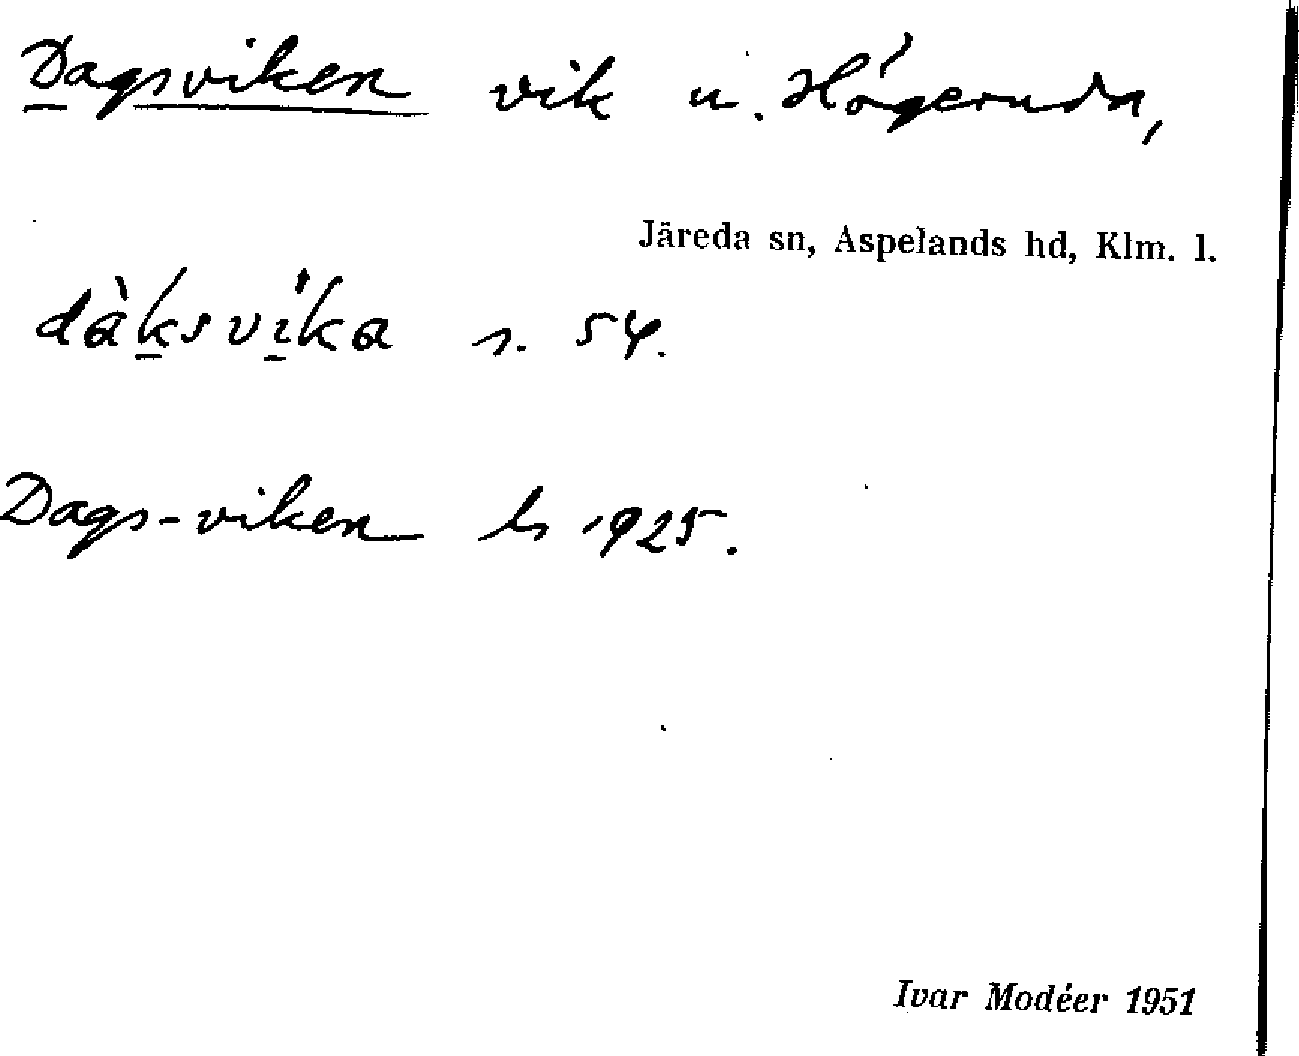 Dagsviken vik u. Högeruda,
Järeda sn, Aspelands hd, Klm. l.
dàksvika s. 54.
Dags-viken ls 1925.
Ivar Modéer 1951